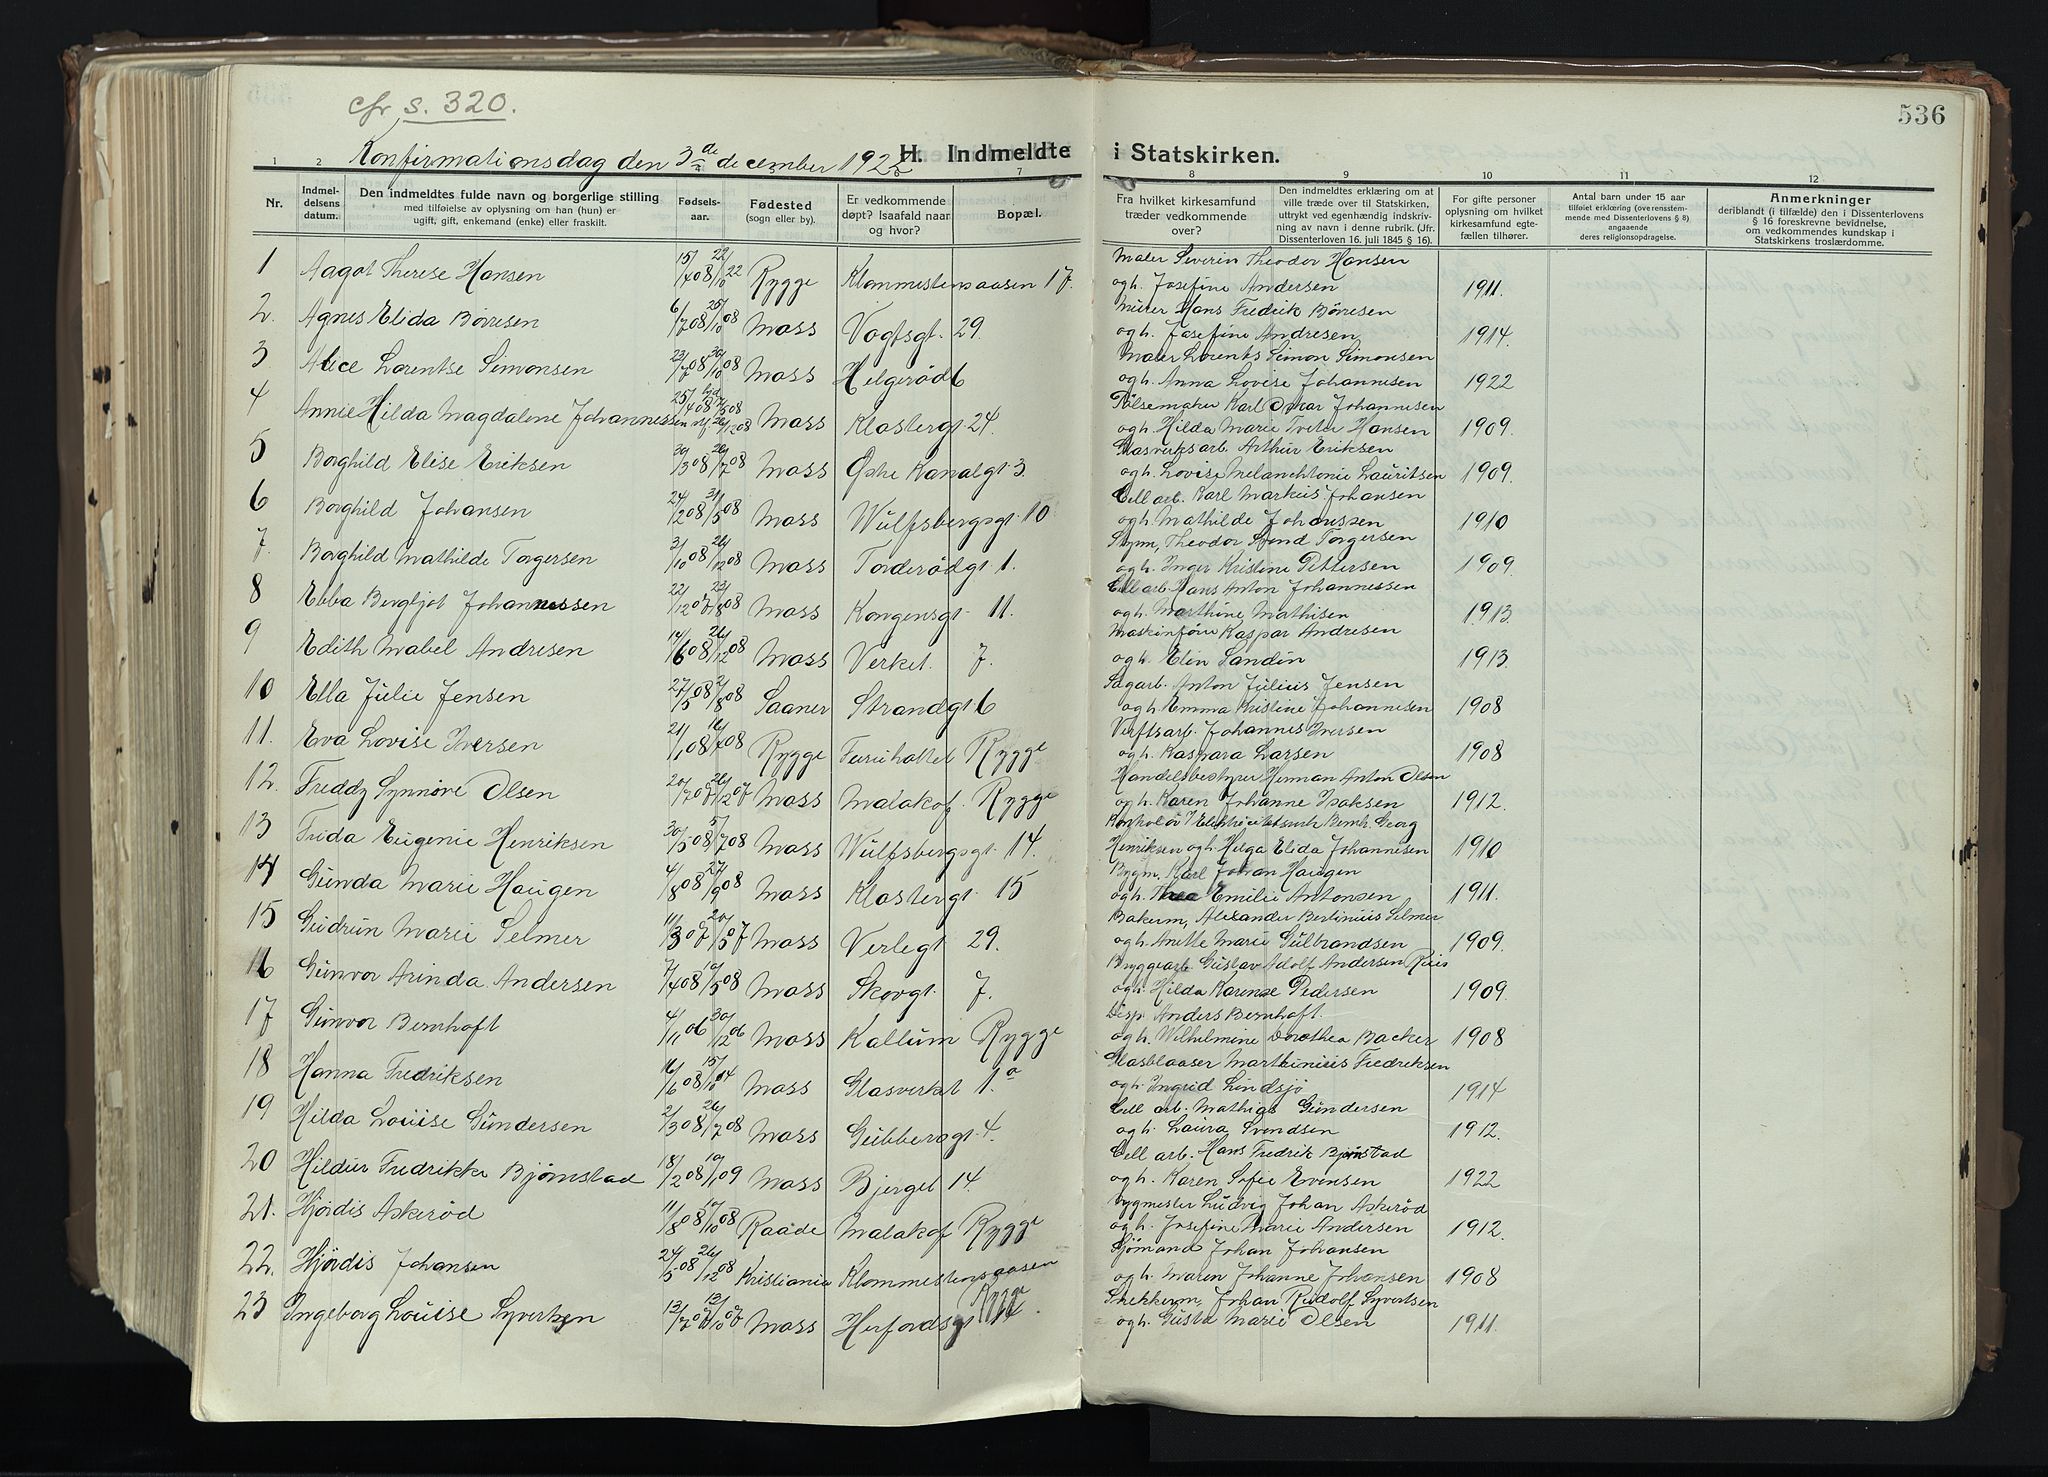 cfr s. 320.
536
Konfirmationsdag den 3de december 1922
H. Indmeldte i Statskirken.
1 2 7 8 9 10 11 12
Nr.
Indmel-
delsens
datum.
Den indmeldtes fulde navn og borgerlige stilling
med tilføielse av oplysning om han (hun) er
ugift, gift, enkemand (enke) eller fraskilt.
Fødsels-
aar.
Fødested
(sogn eller by).
Er vedkommende
døpt? Isaafald naar
og hvor?
Bopæl.
Fra hvilket kirkesamfund
træder vedkommende
over?
Den indmeldtes erklæring om at
ville træde over til Statskirken,
uttrykt ved egenhændig indskriv-
ning av navn i denne rubrik. (Jfr.
Dissenterloven 16. juli 1845 § 16).
For gifte personer
oplysning om hvilket
kirkesamfund egte-
fællen tilhører.
Antal barn under 15 aar
tilføiet erklæring (overensstem-
mende med Dissenterlovens § 8)
angaaende
deres religionsopdragelse.
Anmerkninger
deriblandt (i tilfælde) den i Dissenterlovens
§ 16 foreskrevne bevidnelse,
om vedkommendes kundskap i
Statskirkens troslærdomme.
Maler Severin Theodor Hansen
1 Aagot Therese Hansen 15/7 08 22/10 22 Rygge Klommestensaasen 17. og h. Josefine Andersen 1911.
Murer Hans Fredrik Børresen
2. Agnes Elida Børresen 6/7 08 25/10 08 Moss Vogtsgt. 29. og h. Josefine Andresen 1914.
Maler Lorents Simon Simonsen
3 Alice Lorentse Simonsen 23/7 08 30/10 08 Moss Helgerød 6 og h. Anna Lovise Johannesen 1922
Pølsemaker Karl Oskar Johannesen
4 Annie Hilda Magdalene Johannessen 25/4 08 Moss Klostergt 24. og h. Hilda Marie Hansen 1909.
Glasverksarb. Arthur Eriksen
5 Borghild Elise Eriksen 30/3 08 26/7 08 Moss Østre Kanalgt 3. og h. Lovise Melanchtonie Lauritsen 1909.
Cell arb. Karl Markus Johansen
6 Borghild Johansen 24/2 08 31/5 08 Moss Wulfsbergsgt. 10 og h. Mathilde Johanssen 1910
Theodor Torgersen
7. Borghild Mathilde Torgersen 31/10 08 26/12 08 Moss Torderødgt 1. og h. Inger Kristine Pettersen 1909.
Cell arb. Hans Anton Johannessen
8 Ebba Bergljot Johannessen 22/12 07 23/8 08 Moss Kongensgt. 11. og h. Marthine Mathisen 1913.
Maskinfører Kaspar Andresen
9 Edith Mabel Andresen 14/6 08 26/12 08 Moss Verket. 7. og h. Elin Sandin 1913.
Sagarb. Anton Julius Jensen
10 Ella Julie Jensen 27/5 08 2/8 08 Saaner Strandgt 6 og h. Emma Kristine Johannesen 1908
Verftsarb. Johannes Iversen
11. Eva Lovise Iversen 21/1 08 16/7 08 Rygge Furuholtet Rygge og h. Kaspara Larsen 1908
Handelsbestyrer Herman Anton Olsen
12. Freddy Synnøve Olsen 20/7 07 26/12 07 Moss Malakof. Rygge og h. Karen Johanne Isaksen 1912.
Kontolør v/ Elektricitetsverk Bernh. Georg
13 Frida Eugenie Henriksen 30/5 08 5/7 08 Moss Wulfsbergsgt. 14. Henriksen og h. Helga Elida Johannesen 1910
Bygm. Karl Johan Haugen
14 Gunda Marie Haugen 4/8 08 27/9 08 Moss Klostergt. 15 og h. Thea Emilie Antonsen 1911.
Bakerm, Alexander Bertinius Selmer
15 Gudrun Marie Selmer 11/3 07 20/5 07 Moss Verlegt 29. og h. Anette Marie Gulbrandsen 1909.
Bryggearb. Gustav Adolf Andersen Riis
16 Gunvor Arinda Andersen 7/4 08 10/5 08 Moss Skovgt. 7. og h. Hilda Karense Pedersen 1909.
Disp. Anders Bernhoft.
17 Gunvor Bernhoft 4/11 06 30/12 06 Moss Kallum Rygge og h. Wilhelmine Dorothea Backer 1908
Glasblaaser Marthinius Fredriksen
18 Hanna Fredriksen 16/6 08 15/10 14 Moss Glasverket 1a og h. Ingrid Lindsjø 1914
Cell arb. Mathias Gundersen
19 Hilda Louise Gundersen 2/3 08 26/7 08 Moss Gubberogt. 4. og h. Laura Svendsen 1912.
Cell arb. Hans Fredrik Bjørnstad
20 Hildur Fredrikke Bjørnstad 18/12 08 10/1 09 Moss Bjerget 14. og h. Karen Sofie Evensen 1922
Bygmester Ludvig Johan Askerød
21. Hjørdis Askerød 11/8 08 18/10 08 Raade Malakof Rygge og h. Josefine Marie Andersen 1912.
Sjømand Johan Johansen
22. Hjørdis Johansen 24/5 08 26/12 08 Kristiania Klommestensaasen Rygge og h. Maren Johanne Johansen 1908
Snekkerm, Johan Rudolf Syvertsen
23 Ingeborg Louise Syvertsen 13/7 07 13/10 07 Moss Herfordsgt 14. og h. Gusta Marie Olsen 1911.